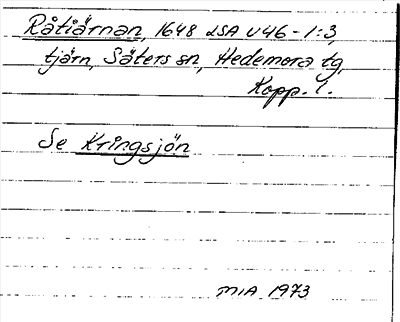 Råtiärnan, 1648 LSA U46-1:3,
tjärn, Säters sn, Hedemora tg,
Kopp. l.
Se Kringsjön
MIA 1973